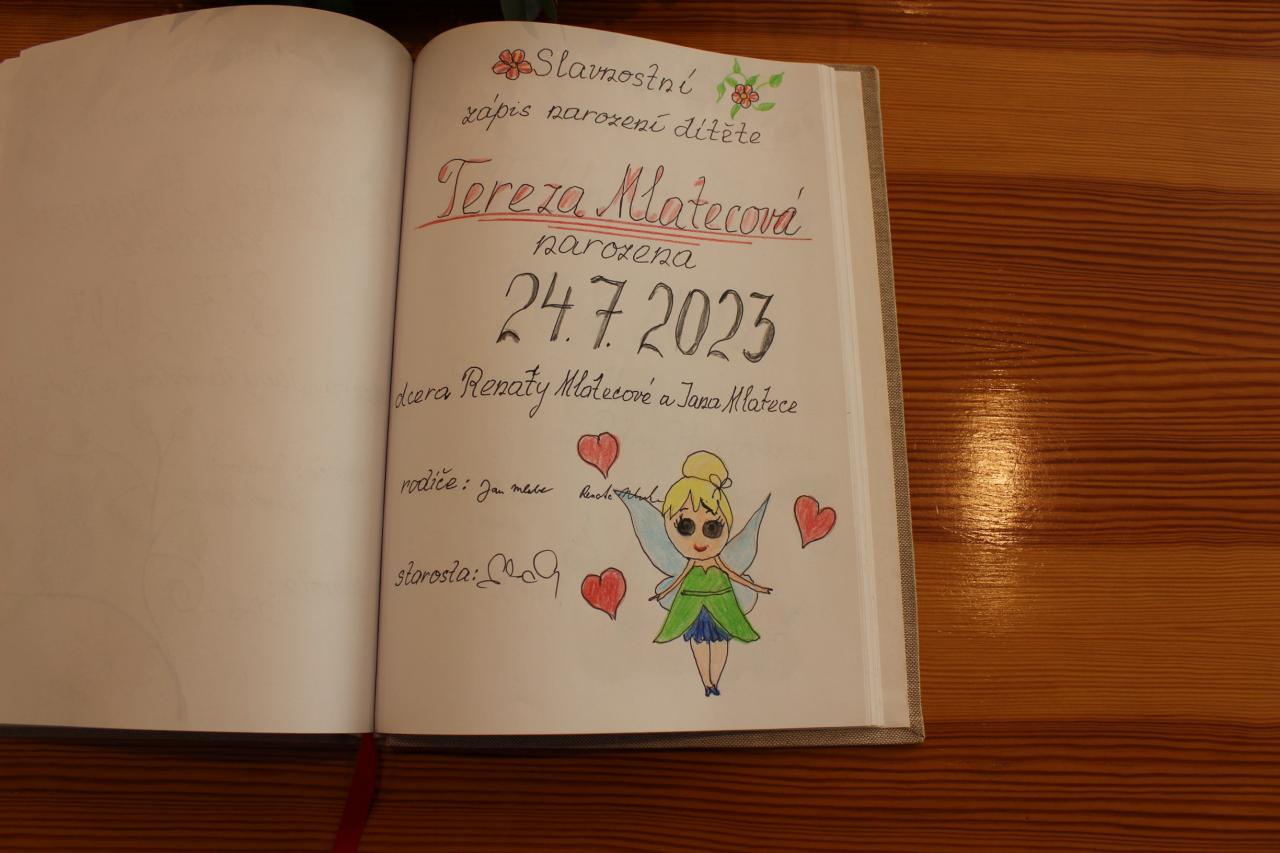 Slavnostní
zápis narození dítěte
Tereza Mlatecová
narozena
24.7.2023
dcera Renaty Mlatecové a Jana Mlatece
rodiče: Jan Renata
starosta: